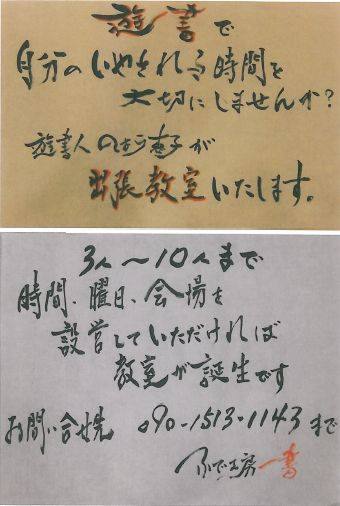 遊書で
自分のいやされる時間を
大切にしませんか?
遊書人 のぶ恵子が
出張教室いたします。
3人〜10人まで
時間、曜日、会場を
設営していただければ
教室が誕生です
お問い合せ先 090-1513-1143まで
ふで工房一書